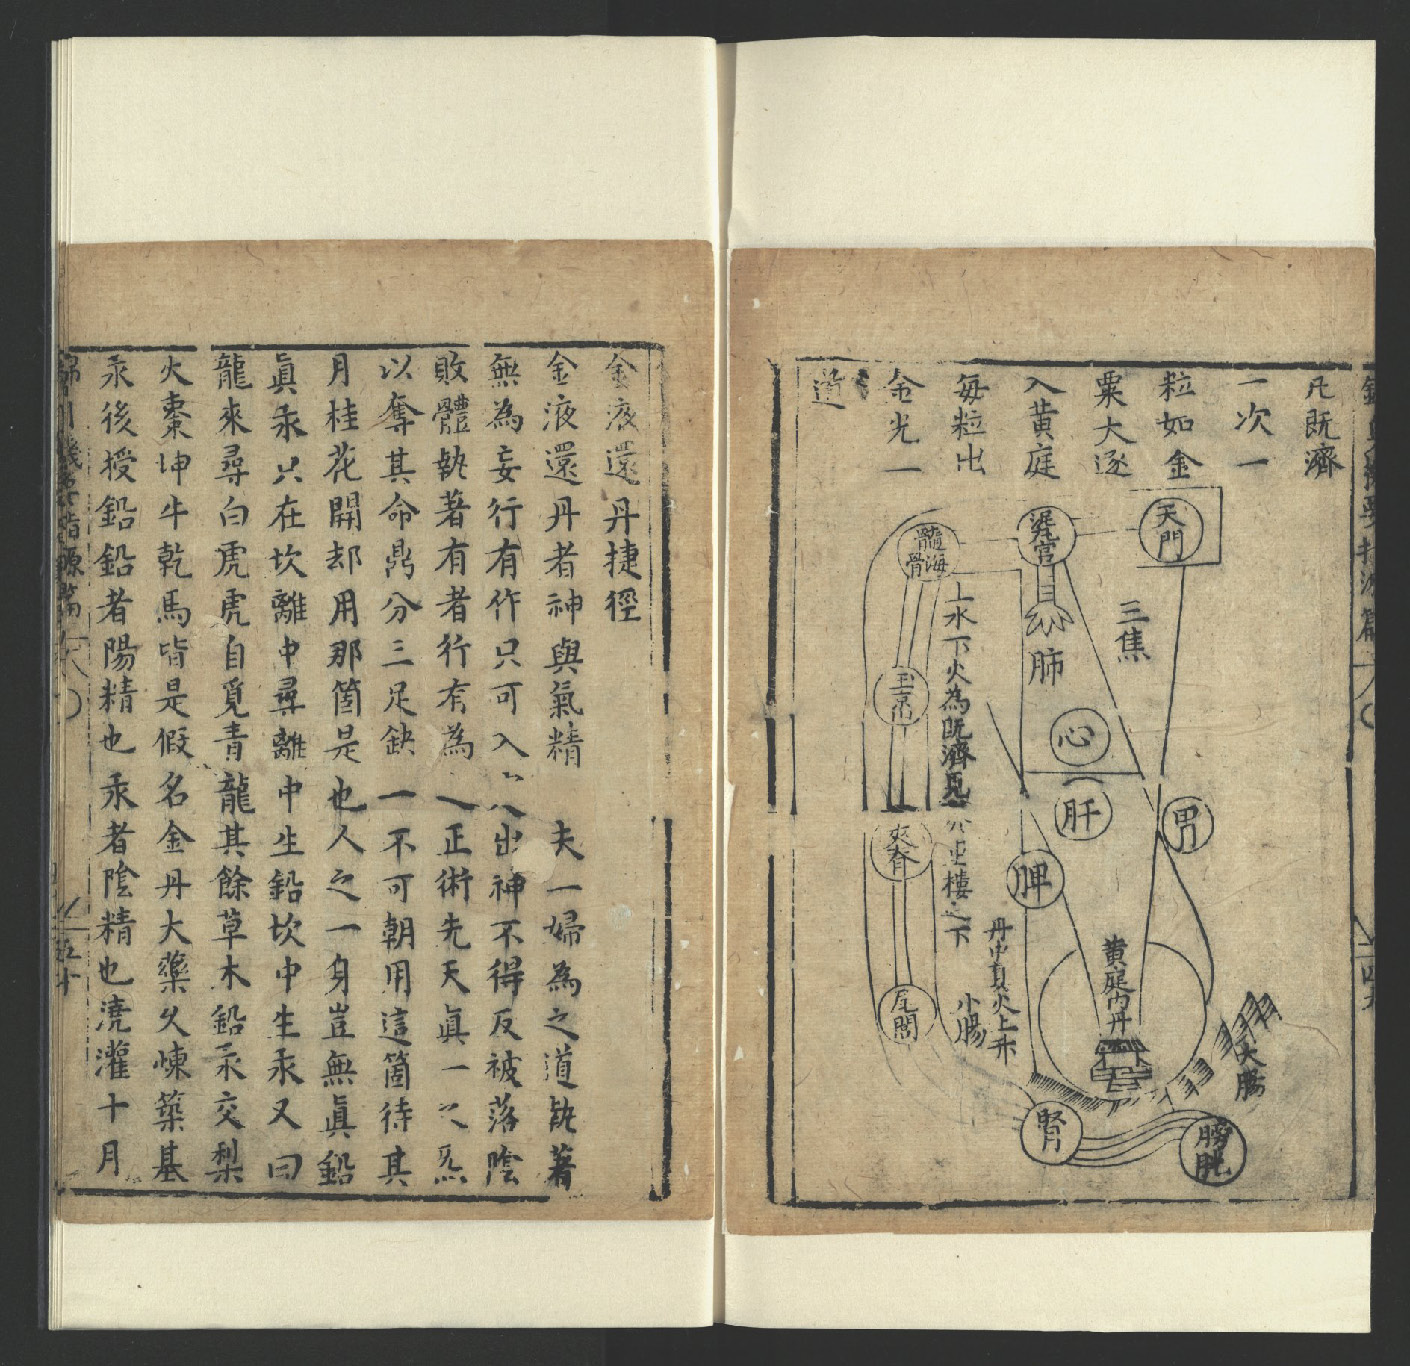 凡既濟
一次一
粒如金
粟大逐
入黄庭
每粒出
金光一
道
天門
巽宫
髓海骨
三焦
肺
心
肝
胃
脾
上水下火為既濟
重樓之下
夾脊
尾閭
丹中真火上升
小腸
黄庭內丹
大腸
腎
膀胱
金液還丹捷徑
金液還丹者神與氣精 夫一婦為之道執著
無為妄行有作只可入 出神不得反被落陰
敗體執著有者行有為 正術先天眞一之炁
以奪其命鼎分三足缺一不可朝用這箇待其
月桂花開却用那箇是也人之一身豈無眞鉛
眞汞只在坎離中尋離中生鉛坎中生汞又曰
龍來尋白虎虎自覓青龍其餘草木鉛汞交梨
火棗坤牛乾馬皆是假名金丹大藥火煉築基
汞後授鉛鉛者陽精也汞者陰精也澆灌十月